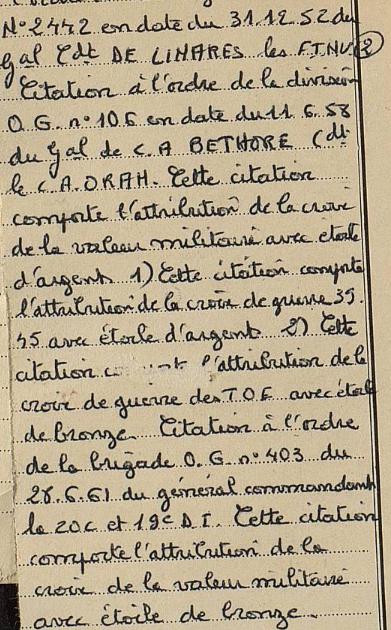 N° 2442 en date du 31.12.52 du
Gal Cdt DE LINARES les F.T.N.V (2)
Citation à l'ordre de la division
O.G. n° 106 en date du 11.6.58
du Gal de C.A BETHORE Cdt
le C.A.ORAH. Cette citation
comporte l'attribution de la croix
de la valeur militaire avec etoile
d'argent 1) Cette citation comporte
l'attribution de la croix de guerre 39.
45 avec étoile d'argent 2) Cette
citation l'attribution de la
croix de guerre des T.O.E avec étoile
de bronze. Citation à l'ordre
de la brigade O.G. n° 403 du
28.6.61 du général commandant
la 20e et 19e D.I. Cette citation
comporte l'attribution de la
croix de la valeur militaire
avec étoile de bronze.